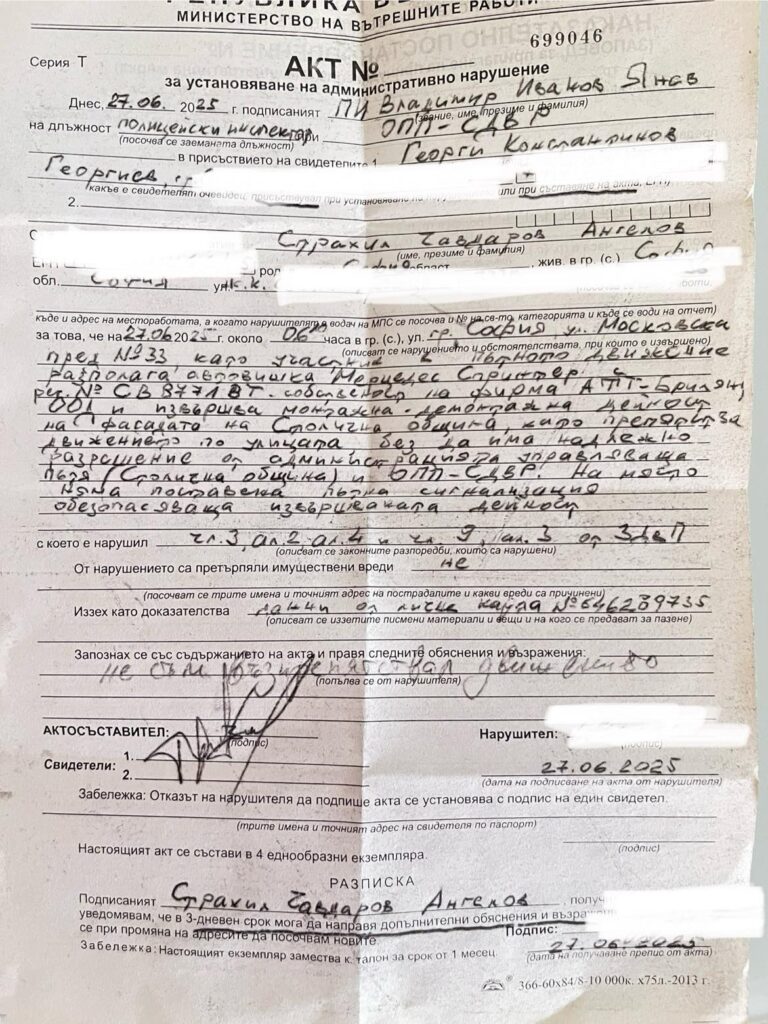 РЕПУБЛИКА
МИНИСТЕРСТВО НА ВЪТРЕШНИТЕ РАБОТИ
699046
Серия Т
АКТ №
за установяване на административно нарушение
Днес, 27.06. 2025 г. подписаният ПИ Владимир Иванов Янев
(звание, име, презиме и фамилия)
на длъжност полицейски инспектор при ОПП-СДВР
(посочва се заеманата длъжност)
в присъствието на свидетелите 1. Георги Константинов
Георгиев,
какъв е свидетелят очевидец, присъствувал при установяване на или при съставяне на акта, ЕГН
2.
Страхил Чавдаров Ангелов
(име, презиме и фамилия)
ЕГН род област , жив. в гр. (с.) София
обл. София ул. ж.к.
къде и адрес на местоработата, а когато нарушителят е водач на МПС се посочва и № на св-то, категорията и къде се води на отчет)
за това, че на 27.06 2025 г. около 06 часа в гр. (с.), ул. гр. София ул. Московска
(описват се нарушението и обстоятелствата, при които е извършено)
пред №33 като участник в пътното движение
разполага автовишка Мерцедес Спринтер с
рег.№ СВ8771ВТ собственост на фирма АТТ-Брилянт
ООД и извършва монтажна-демонтажна дейност
на фасадата на Столична община, като препятства
движението по улицата, без да има надлежно
разрешение от администрацията управляваща
пътя (Столична община) и ОПП-СДВР. На място
няма поставена пътна сигнализация
обезопасяваща извършваната дейност
с което е нарушил чл.3, ал.2 ал.4 и чл. 9, ал.3 от ЗДвП
(описват се законните разпоредби, които са нарушени)
От нарушението са претърпяли имуществени вреди не
(посочват се трите имена и точният адрес на пострадалите и какви вреди са причинени)
Иззех като доказателства данни от лична карта №646289735
(описват се иззетите писмени материали и вещи и на кого се предават за пазене)
Запознах се със съдържанието на акта и правя следните обяснения и възражения:
не съм възпрепятствал движението
(попълва се от нарушителя)
АКТОСЪСТАВИТЕЛ:
(подпис)
Нарушител:
(подпис)
Свидетели: 1.
2.
27.06.2025
(дата на подписване на акта от нарушителя)
Забележка: Отказът на нарушителя да подпише акта се установява с подпис на един свидетел.
(трите имена и точният адрес на свидетеля по паспорт)
(подпис)
Настоящият акт се състави в 4 еднообразни екземпляра.
РАЗПИСКА
Подписаният Страхил Чавдаров Ангелов , получ
уведомявам, че в 3-дневен срок мога да направя допълнителни обяснения и възра
се при промяна на адресите да посочвам новите.
Подпис:
27.06.2025
Забележка: Настоящият екземпляр замества к. талон за срок от 1 месец.
(дата на получаване препис от акта)
366-60х84/8-10 000к. х75л.-2013 г.